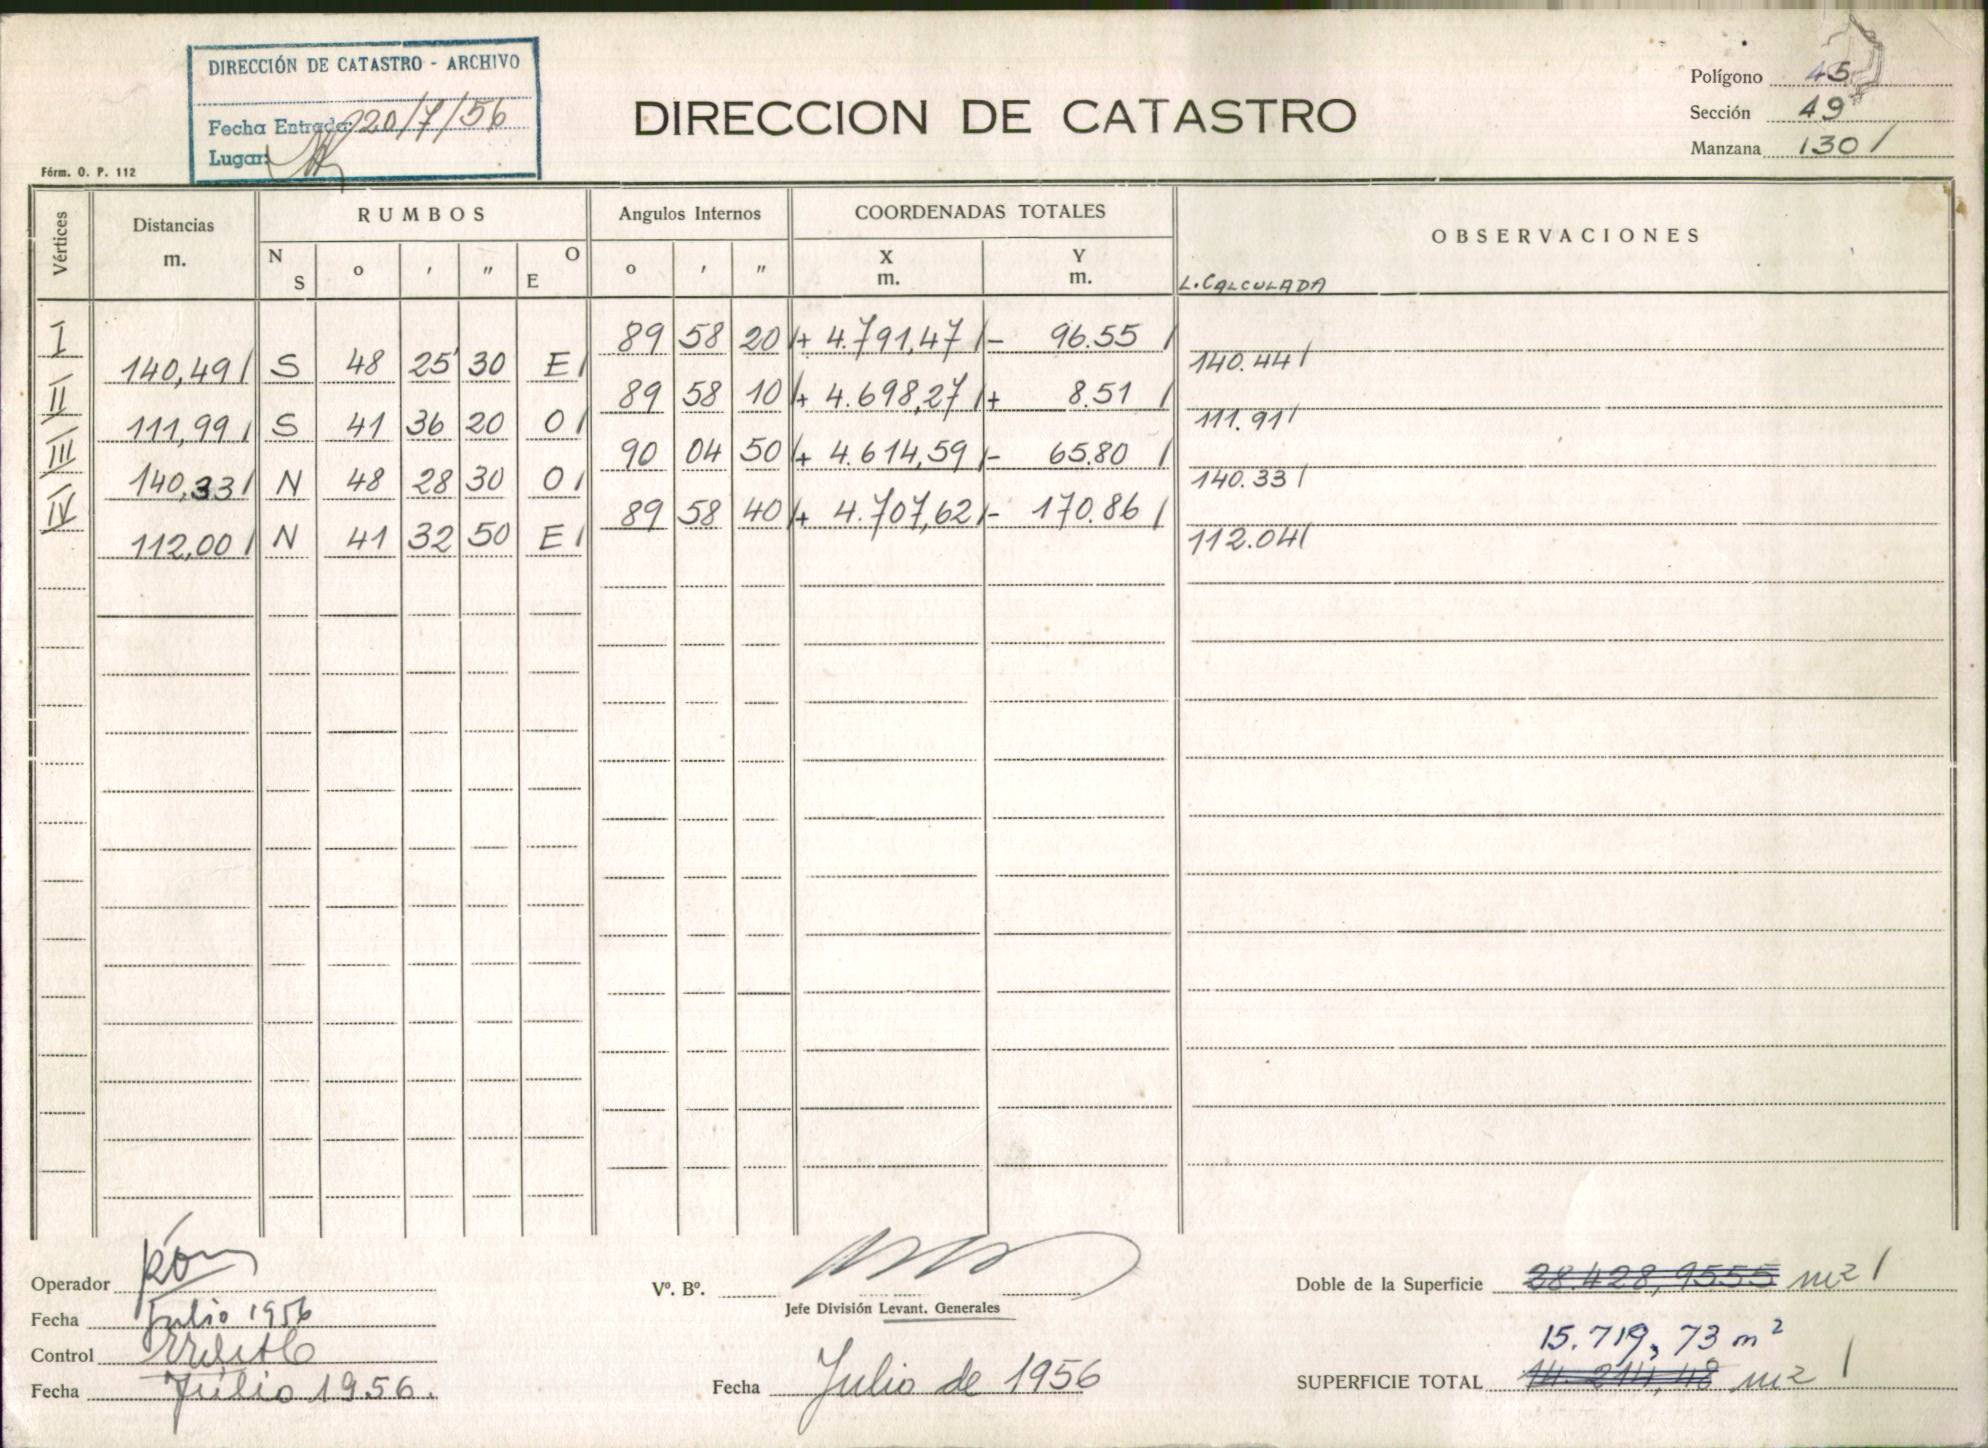 DIRECCIÓN DE CATASTRO - ARCHIVO
Fecha Entrada: 20/7/56
Lugar:
DIRECCION DE CATASTRO
Polígono 45
Sección 49
Manzana 130 /
Fórm. O. P. 112
Vértices Distancias m. RUMBOS Angulos Internos COORDENADAS TOTALES OBSERVACIONES
N S o ' " O E o ' " X m. Y m. L. CALCULADA
I 89 58 20 + 4.791,47 / - 96.55 /
140,49 / S 48 25' 30 E / 140.44 /
II 89 58 10 + 4.698,27 / + 8.51 /
111,99 / S 41 36 20 O / 111.91 /
III 90 04 50 + 4.614,59 / - 65.80 /
140,33 / N 48 28 30 O / 140.33 /
IV 89 58 40 + 4.707,62 / - 170.86 /
112,00 / N 41 32 50 E / 112.04 /
Operador
Fecha Julio 1956
Control
Fecha Julio 1956.
Vº. Bº.
Jefe División Levant. Generales
Fecha Julio de 1956
Doble de la Superficie 28.428,9555 m2 /
15.719,73 m2
SUPERFICIE TOTAL 14.214,48 m2 /